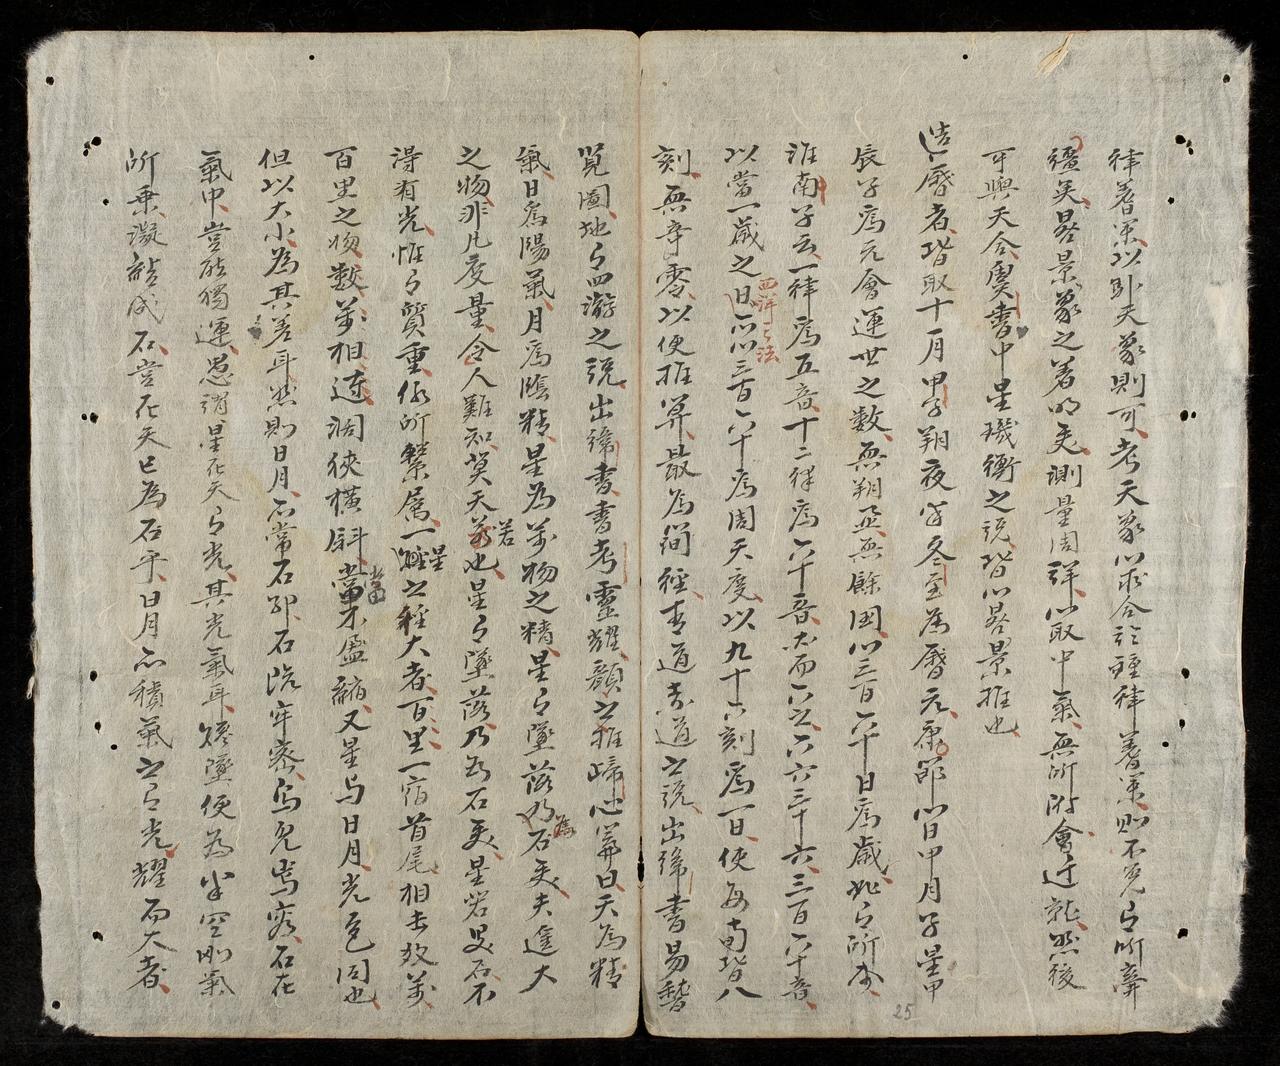 律蓍策以卦天象則可考天象以求合於鍾律蓍策則不免有所牽
彊矣晷景象之著明更測量周詳以取中氣無所附會迁就然後
可與天合虞書中星璣衡之說皆以晷景推也
造曆者皆取十一月甲子朔夜半冬至為曆元康節以日甲月子星甲
辰子為元會運世之數無朔虛無餘因以三百六十日為歲如有所本
淮南子云一律為五音十二律為六十音因而六之六六三十六三百六十音
以當一歲之日亦以三百六十為周天度以九十六刻為一日使每
刻無奇零以便推算最為簡經有道赤道之說出緯書易
覽圖地有四游之說出緯書考靈耀顏之推歸心篇曰天為精
氣日為陽氣月為陰精星為萬物之精星有墜落乃為石矣夫遙大
之物非凡度量今人難知莫若天也星有墜落乃為石矣星若是石不
得有光惟有質重何所繫屬一星之徑大者百里一宿首尾相去數萬
百里之物數萬相連闊狹橫斜當不盈縮又星與日月光色同也
但以大小為其差耳然則日月亦當石耶石既牢密烏兔焉容石在
氣中豈能獨運愚謂星在天有光其光氣耳墜便為半空剛氣
所乘凝結成石豈在天已為石乎日月亦積氣之有光耀而大者
西洋
25